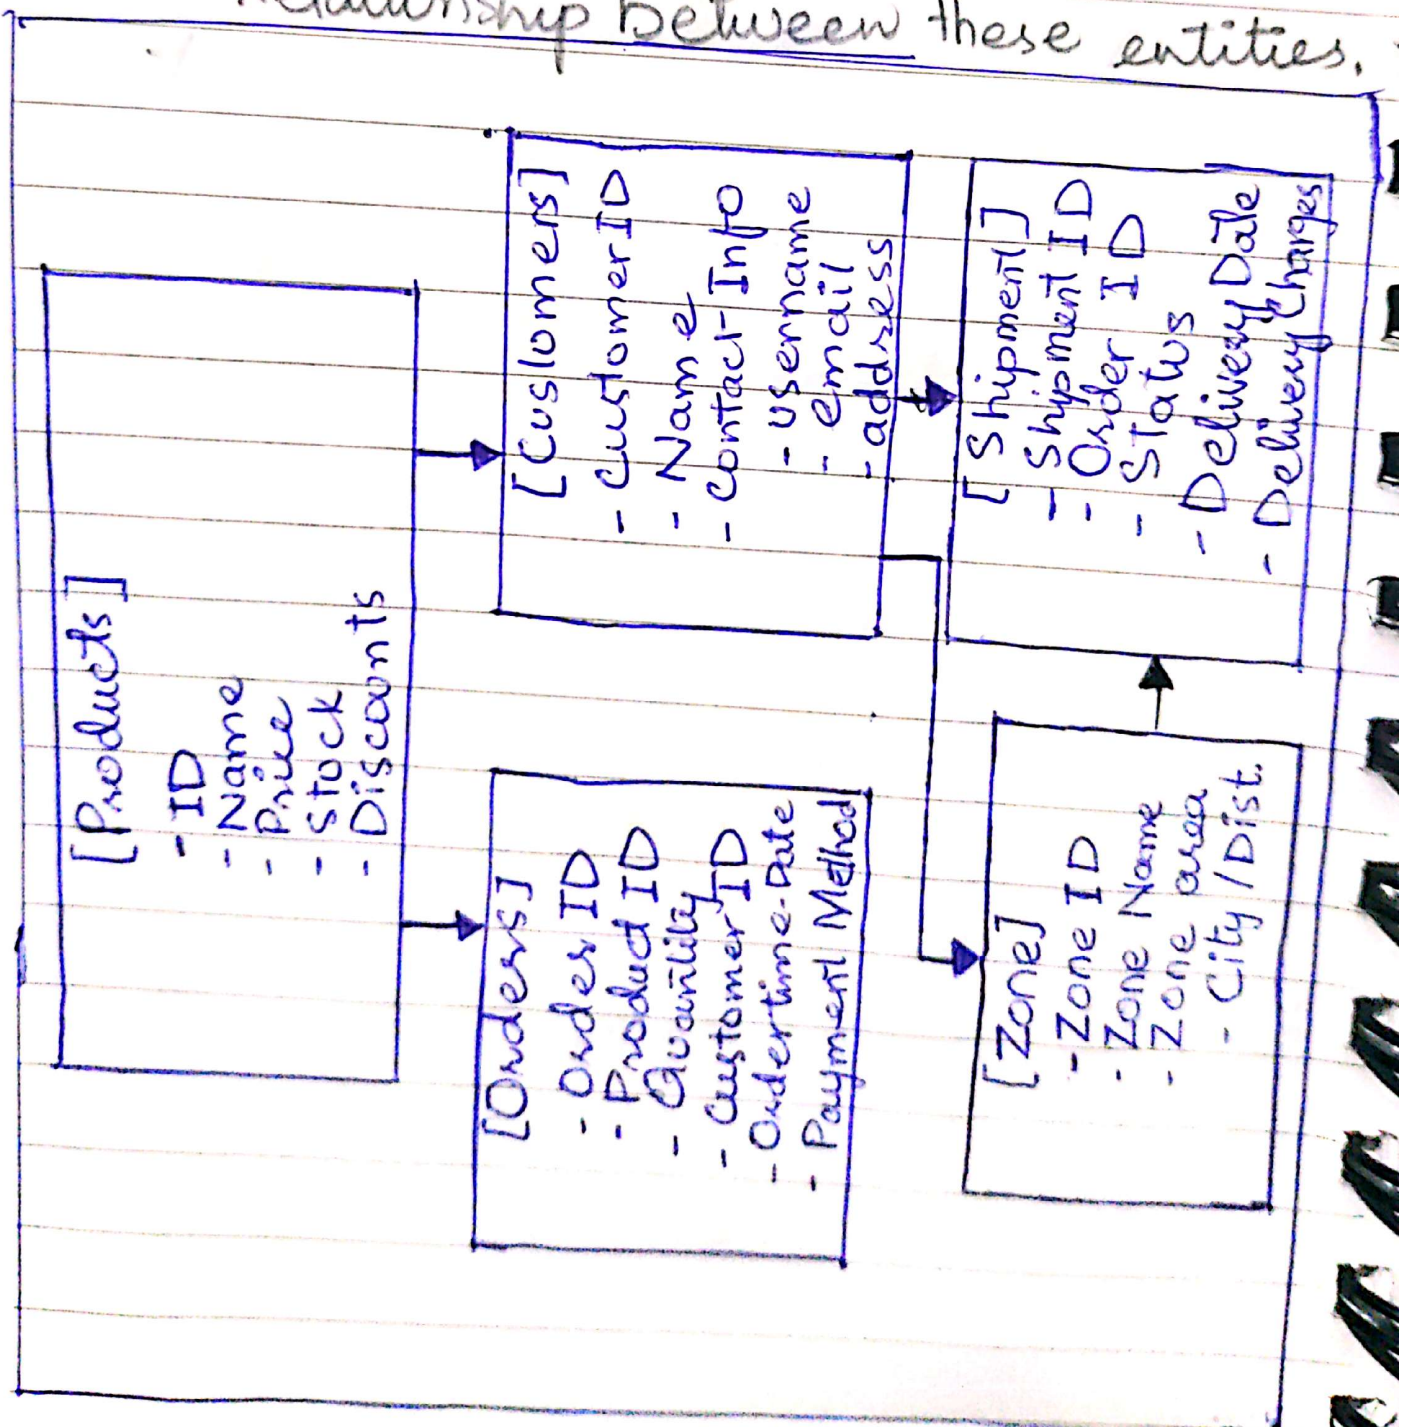 Relationship Between these entities.
[Products]
- ID
- Name
- Price
- Stock
- Discounts
[Customers]
- Customer ID
- Name
- Contact Info
- username
- email
- address
[Orders]
- Order ID
- Product ID
- Quantity
- Customer ID
- Ordertime-Date
- Payment Method
[Shipment]
- Shipment ID
- Order ID
- Status
- Delivery Date
- Delivery Charges
[Zone]
- Zone ID
- Zone Name
- Zone area
- City/Dist.